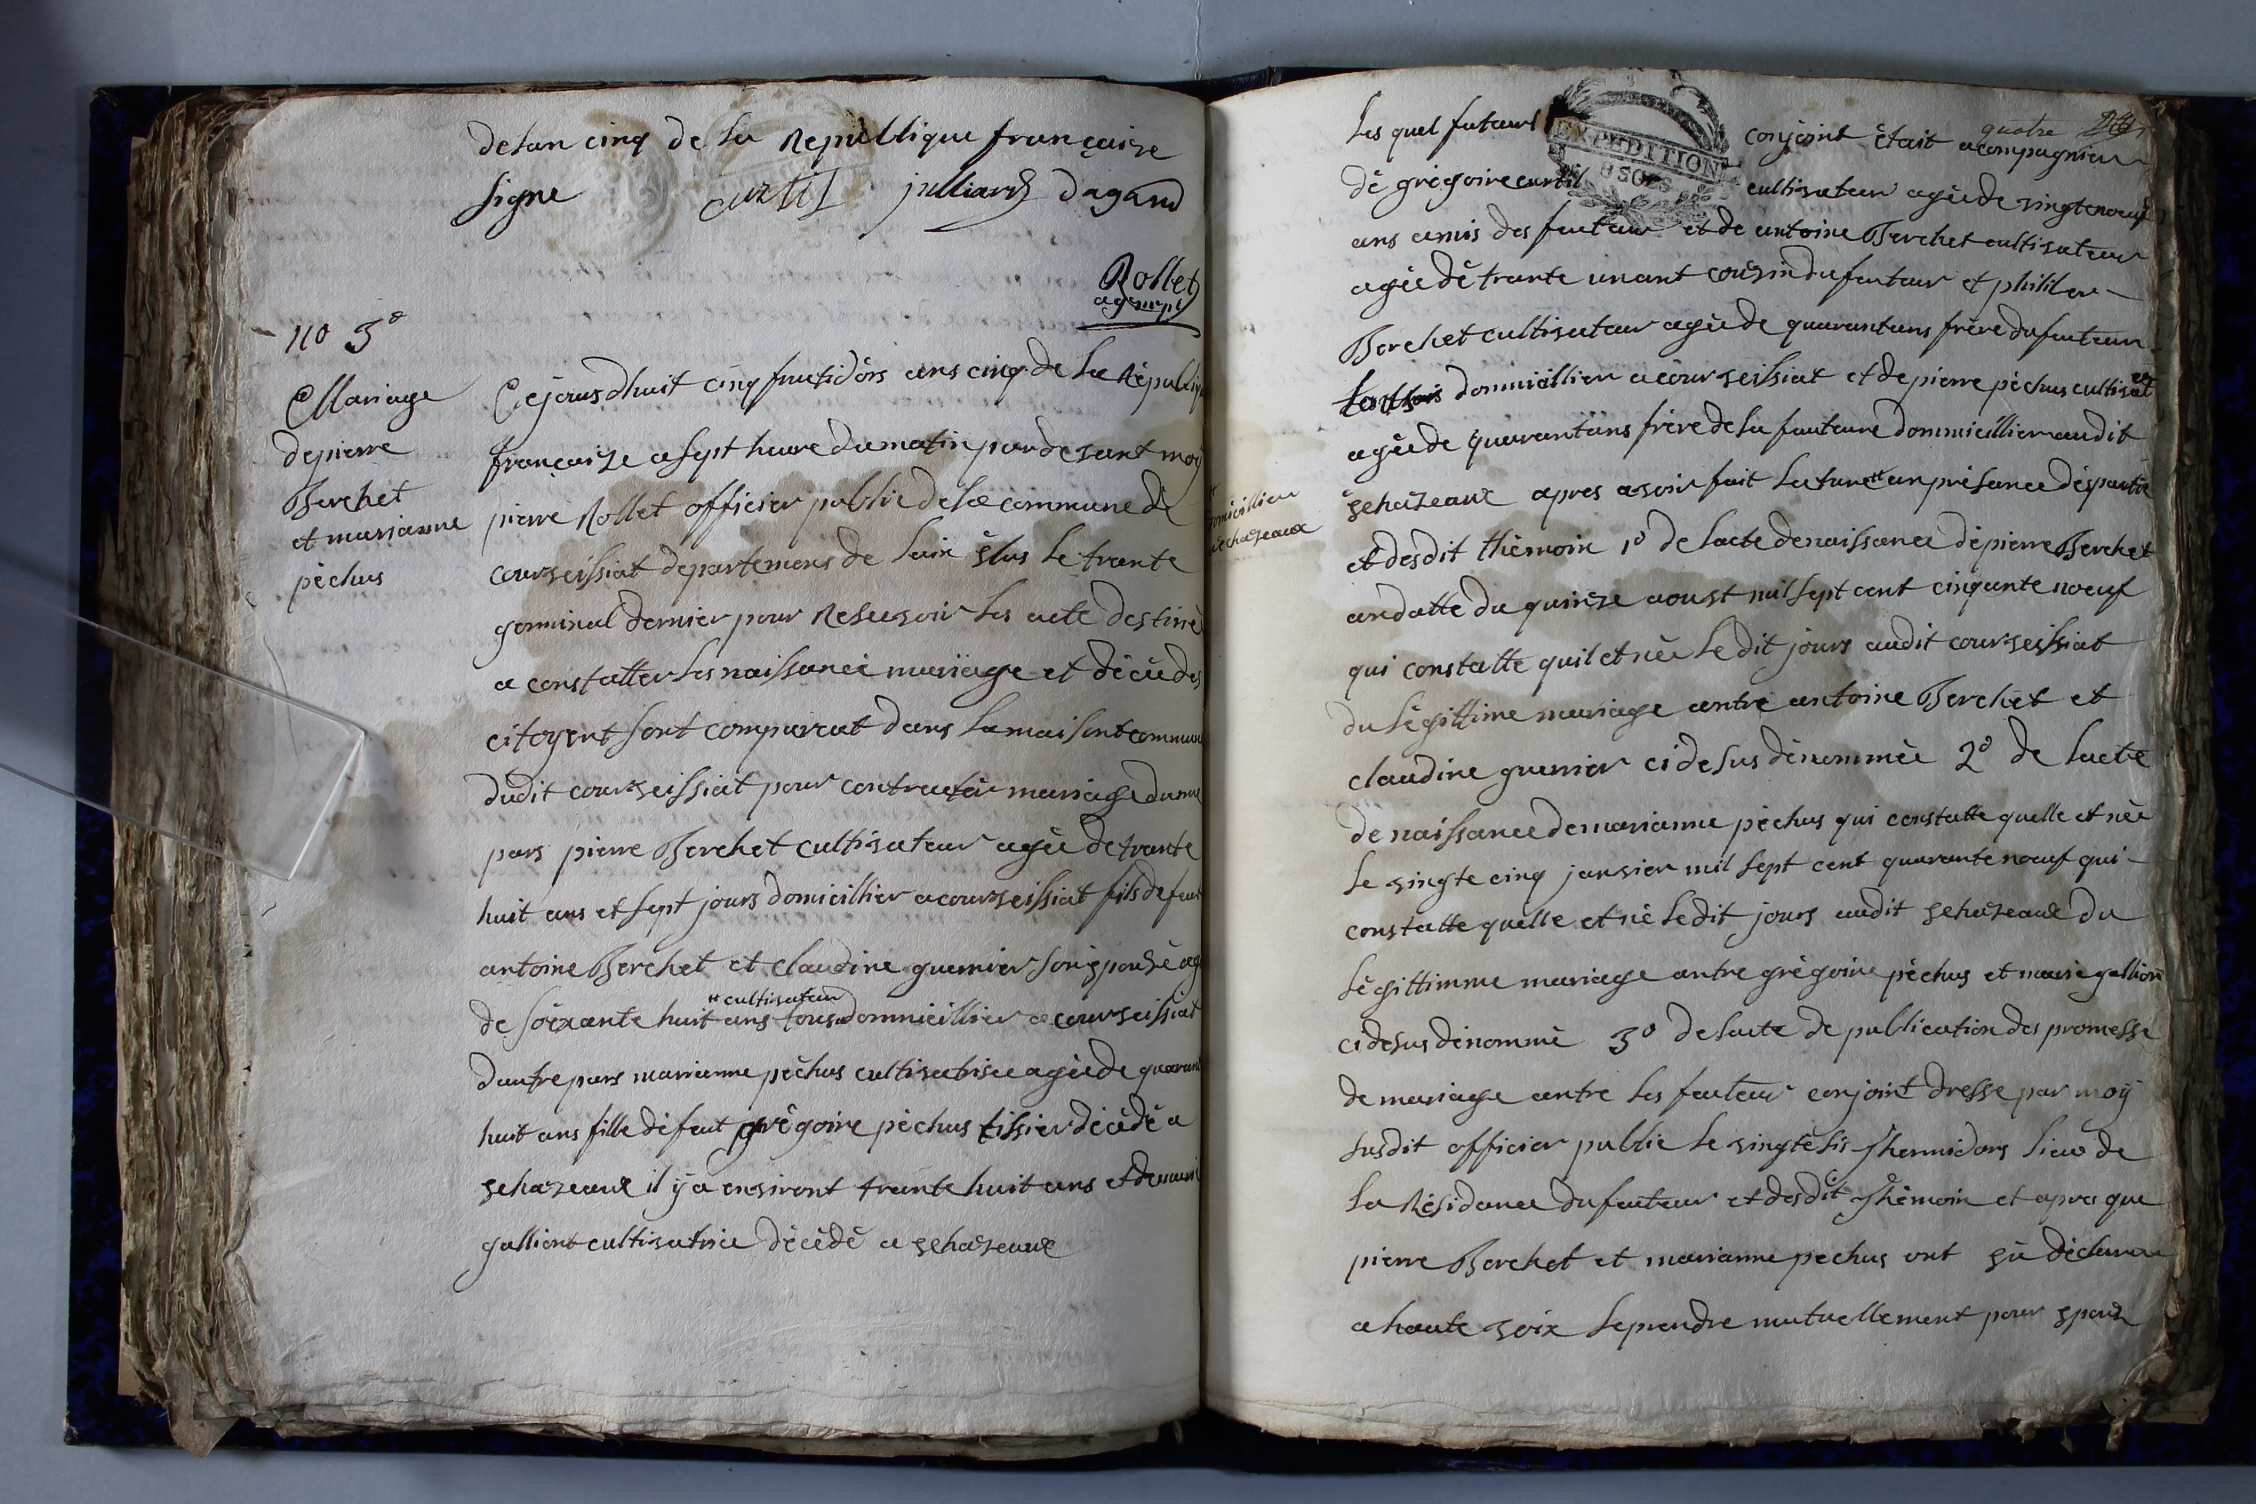 delan cinq de la Republique françaize
signe curtil julliard dagand
Rollet
agemp
no 3e
Mariage
depierre
Berchet
et marianne
pèchus
Cejourdhuit cinq fructidors ans cinq de la Républiq
françaize a sept heure du matin par devant moy
pierre Rollet officier public de la commune de
courseissiat departemens de lain élus le trante
germinal dernier pour Resesvoir les acte destinè
a constatter les naissancè mariage et dècèdes
citoyent sont compareut dans lamaisont commune
dudit courseissiat pour contracter mariage dunne
pars pierre Berchet cultivateur agèe de trante
huit ans et sept jours domicillier a courseissiat fils de feut
antoine Berchet et claudine guernier son épouzè age
cultivateur
de soixante huit ans tous domnicillier a courseissiat
dautre pars marianne pèchus cultivatrice agèe de quarant
huit ans fille dè feut grègoire pèchus tissier dècèdè a
sehazeaux il ÿ a environt trante huit ans et demarie
galliont cultivatrice dècèdè a sehazeaux
quatre
Les quel futeurs conjoint ètait acompagnier
EXPEDITION
8 SOLS
dè grègoire curtil cultivateur agèe de vingtenoeuf
ans amis des feuteur et de antoine Berchet cultivateur
agèe dè trante unant couzin du feuteur et philiber
Berchet cultivateur agèe de quarantans frère du feuteur
domniciillier a courseissiat et de pierre pèchus cultivat
agèe de quarantans frère de la feuteure domnicillier audit
domicillier
sehazeaux
sehazeaux apres avoir fait lecture an prèsance dèspartie
et desdit thèmoin 1o de lacte denaissance dè pierre Berchet
andatte du quinze aoust mil sept cent cinquante noeuf
qui constatte quil et nèe ledit jours audit courseissiat
du lègittime mariage antre antoine Berchet et
claudine guernier cidesus dènommèe 2o de lacte
de naissance de marianne pèchus qui constatte quelle et nèe
le vingte cinq janvier mil sept cent quarante noeuf qui
constatte quelle et nè ledit jours audit sehazeaux du
lègittimme mariage antre grègoire pèchus et marie gallion
cidesus dènommè 3o de lacte de publication des promesse
de mariage antre les feuteur conjoint dresse par moÿ
susdit officier public le vingte sis Thermidors lieu de
la Rèsidance du feuteur et desdit Thèmoin et apres que
pierre Berchet et marianne pechus ont sù dèclarer
a haute voix seprendre mutuellement pour epoux